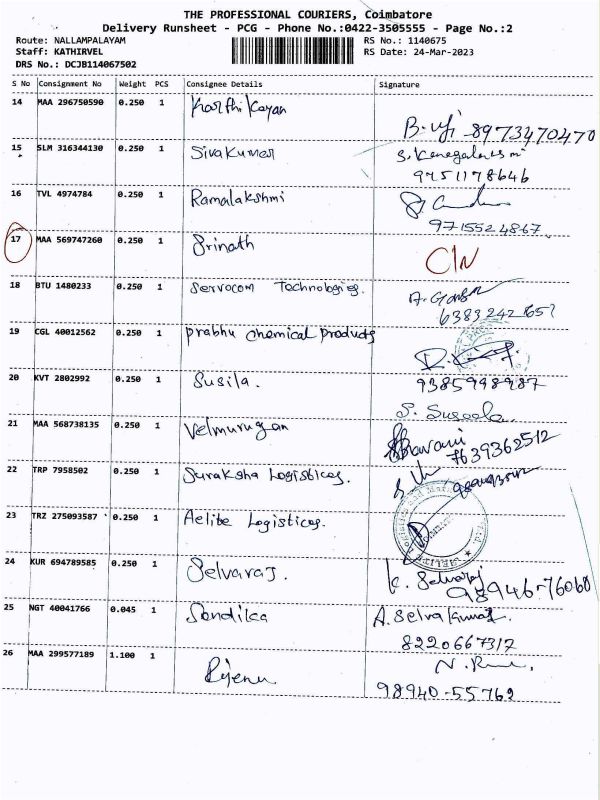 THE PROFESSIONAL COURIERS, Coimbatore
Delivery Runsheet - PCG - Phone No.:0422-3505555 - Page No.:2
Route: NALLAMPALAYAM
RS No.: 1140675
Staff: KATHIRVEL
RS Date: 24-Mar-2023
DRS No.: DCJB114067502
S No Consignment No Weight PCS Consignee Details Signature
14 MAA 296750590 0.250 1 Karthikayan
8973470470
15 SLM 316344130 0.250 1 Sivakumar
9751178646
16 TVL 4974784 0.250 1 Ramalakshmi
9715524867
17 MAA 569747260 0.250 1 Srinath C/N
18 BTU 1480233 0.250 1 Servocom Technologies.
19 CGL 40012562 0.250 1 prabhu chemical products
20 KVT 2802992 0.250 1 Susila. 9385998987
S. Suseela
21 MAA 568738135 0.250 1 Velmurugan
7639362512
22 TRP 7958502 0.250 1 Suraksha Logistices.
23 TRZ 275093587 0.250 1 Aelite Logistices.
24 KUR 694789585 0.250 1 Selvaraj. K. Selvaraj
98946-76060
25 NGT 40041766 0.045 1 Sandika A. Selvakumar
8220667317
26 MAA 299577189 1.100 1
98940-55762